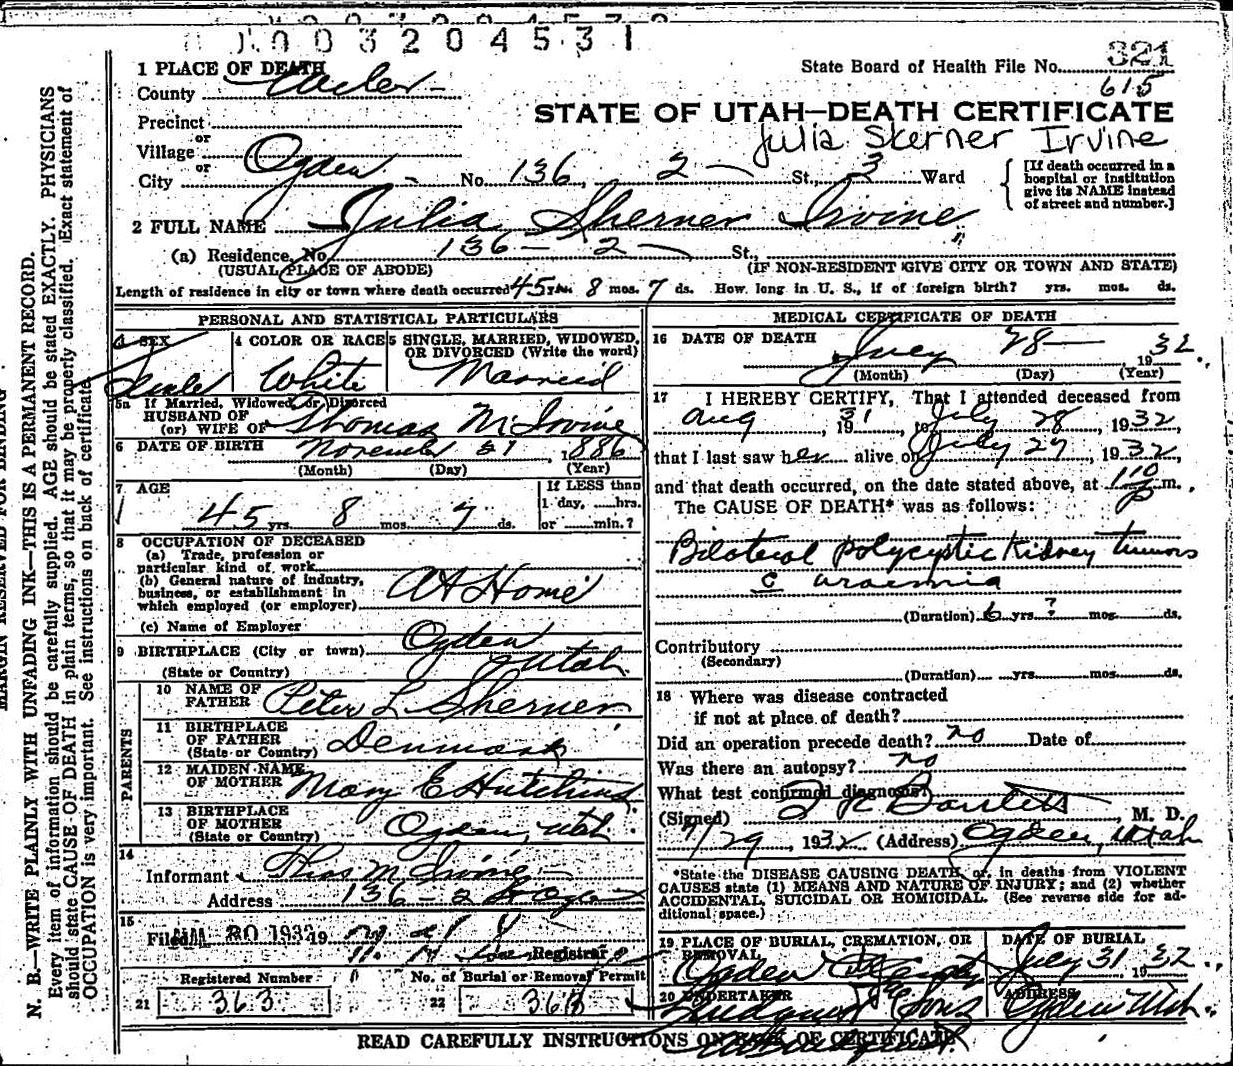 003204531
1 PLACE OF DEATH
State Board of Health File No. 321
County Weber
615
STATE OF UTAH—DEATH CERTIFICATE
Precinct
or
Julia Skerner Irvine
Village
or
City Ogden No. 136 2 St., 3 Ward
[If death occurred in a hospital or institution give its NAME instead of street and number.]
2 FULL NAME Julia Sherner Irvine
(a) Residence, No. 136 — 2 St.,
(USUAL PLACE OF ABODE) (IF NON-RESIDENT GIVE CITY OR TOWN AND STATE)
Length of residence in city or town where death occurred 45 yrs. 8 mos. 7 ds. How long in U. S., if of foreign birth? yrs. mos. ds.
PERSONAL AND STATISTICAL PARTICULARS
3 SEX
4 COLOR OR RACE
5 SINGLE, MARRIED, WIDOWED, OR DIVORCED (Write the word)
Female White Married
5a If Married, Widowed, or Divorced
HUSBAND OF
(or) WIFE OF Thomas M Irvine
6 DATE OF BIRTH November 21 1886
(Month) (Day) (Year)
7 AGE
If LESS than
1 day, hrs.
45 yrs. 8 mos. 7 ds. or min.?
8 OCCUPATION OF DECEASED
(a) Trade, profession or
particular kind of work
(b) General nature of industry,
business, or establishment in
which employed (or employer) At Home
(c) Name of Employer
9 BIRTHPLACE (City or town) Ogden
(State or Country) Utah
PARENTS
10 NAME OF
FATHER Peter L Sherner
11 BIRTHPLACE
OF FATHER
(State or Country) Denmark
12 MAIDEN NAME
OF MOTHER Mary E Hutchins
13 BIRTHPLACE
OF MOTHER
(State or Country) Ogden, Utah.
14
Informant Thos M. Irvine
Address 136 — 2 St Ogden
15
Filed 30 1932 19
Registrar
Registered Number No. of Burial or Removal Permit
21 363 22 363
MEDICAL CERTIFICATE OF DEATH
16 DATE OF DEATH
July 28 — 1932.
(Month) (Day) (Year)
17 I HEREBY CERTIFY, That I attended deceased from
Aug, 1931, to July 28, 1932,
that I last saw her alive on July 27, 1932,
and that death occurred, on the date stated above, at 1 10 p m.
The CAUSE OF DEATH* was as follows:
Bilateral polycystic Kidney tumors
c uraemia
(Duration) 6 yrs. ? mos. ds.
Contributory
(Secondary)
(Duration) yrs. mos. ds.
18 Where was disease contracted
if not at place of death?
Did an operation precede death? no Date of
Was there an autopsy? no
What test confirmed diagnosis?
(Signed) Bartlett, M. D.
7/29, 1932 (Address) Ogden, Utah
*State the DISEASE CAUSING DEATH or, in deaths from VIOLENT
CAUSES state (1) MEANS AND NATURE OF INJURY; and (2) whether
ACCIDENTAL, SUICIDAL OR HOMICIDAL. (See reverse side for ad-
ditional space.)
19 PLACE OF BURIAL, CREMATION, OR
REMOVAL
DATE OF BURIAL
Ogden July 31 1932.
20 UNDERTAKER
ADDRESS
& Sons Ogden Utah.
READ CAREFULLY INSTRUCTIONS ON BACK OF CERTIFICATE
MARGIN RESERVED FOR BINDING
N. B.—WRITE PLAINLY WITH UNFADING INK—THIS IS A PERMANENT RECORD.
Every item of information should be carefully supplied. AGE should be stated EXACTLY. PHYSICIANS
should state CAUSE OF DEATH in plain terms, so that it may be properly classified. Exact statement of
OCCUPATION is very important. See instructions on back of certificate.